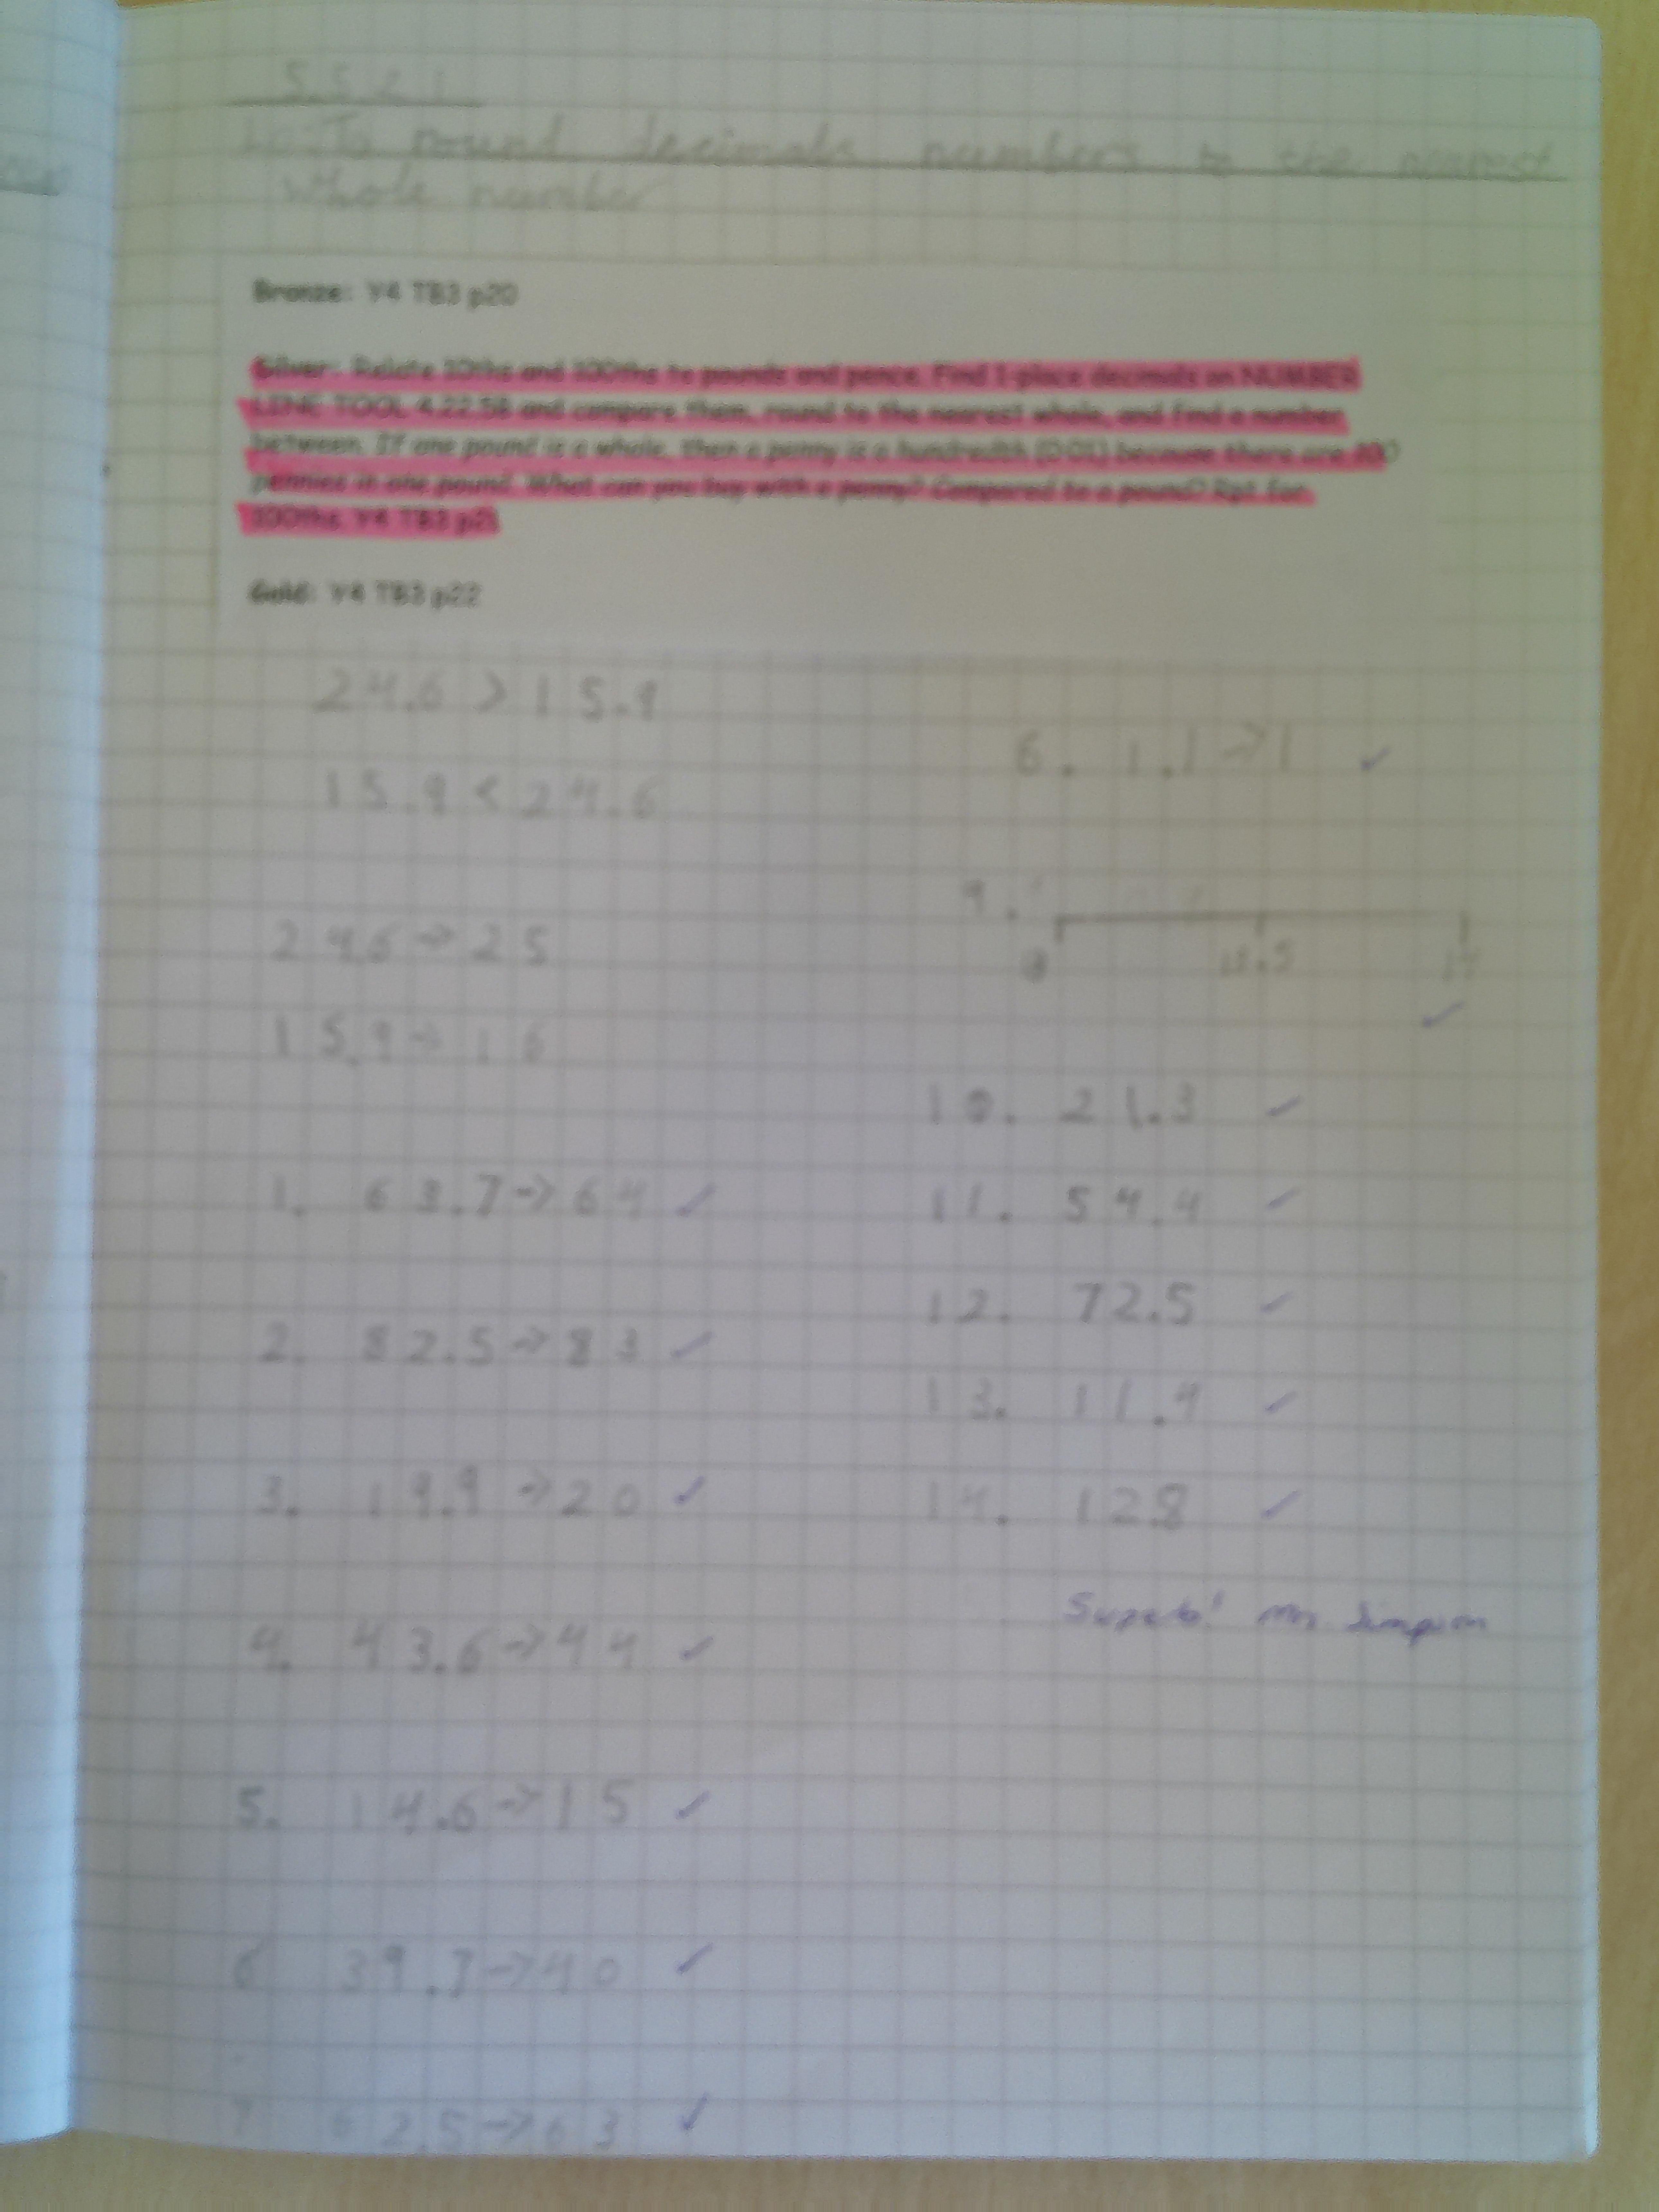 5.5.21
LO: To round decimals numbers to the nearest
whole number
Bronze: Y4 TB3 p20
Silver: Relate 10ths and 100ths to pounds and pence. Find 1-place decimals on NUMBER
LINE TOOL 4.22.58 and compare them, round to the nearest whole, and find a number
between. If one pound is a whole, then a penny is a hundredth (0.01) because there are 100
pennies in one pound. What can you buy with a penny? Compared to a pound? Rpt for
100ths. Y4 TB3 p21
Gold: Y4 TB3 p22
24.6 > 15.9
15.9 < 24.6
24.6 → 25
15.9 → 16
1. 63.7 → 64 ✓
2. 82.5 → 83 ✓
3. 19.9 → 20 ✓
4. 43.6 → 44 ✓
5. 14.6 → 15 ✓
6 39.7 → 40 ✓
7 62.5 → 63 ✓
6. 1.1 → 1 ✓
9.
✓
10. 21.3 ✓
11. 54.4 ✓
12. 72.5 ✓
13. 11.4 ✓
14. 12.8 ✓
Superb! Mr Simpson